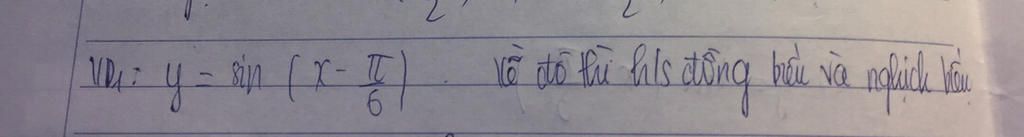 2
2
VD1: y = sin (x - π/6). Vẽ đồ thị h/s đồng biến và nghịch biến